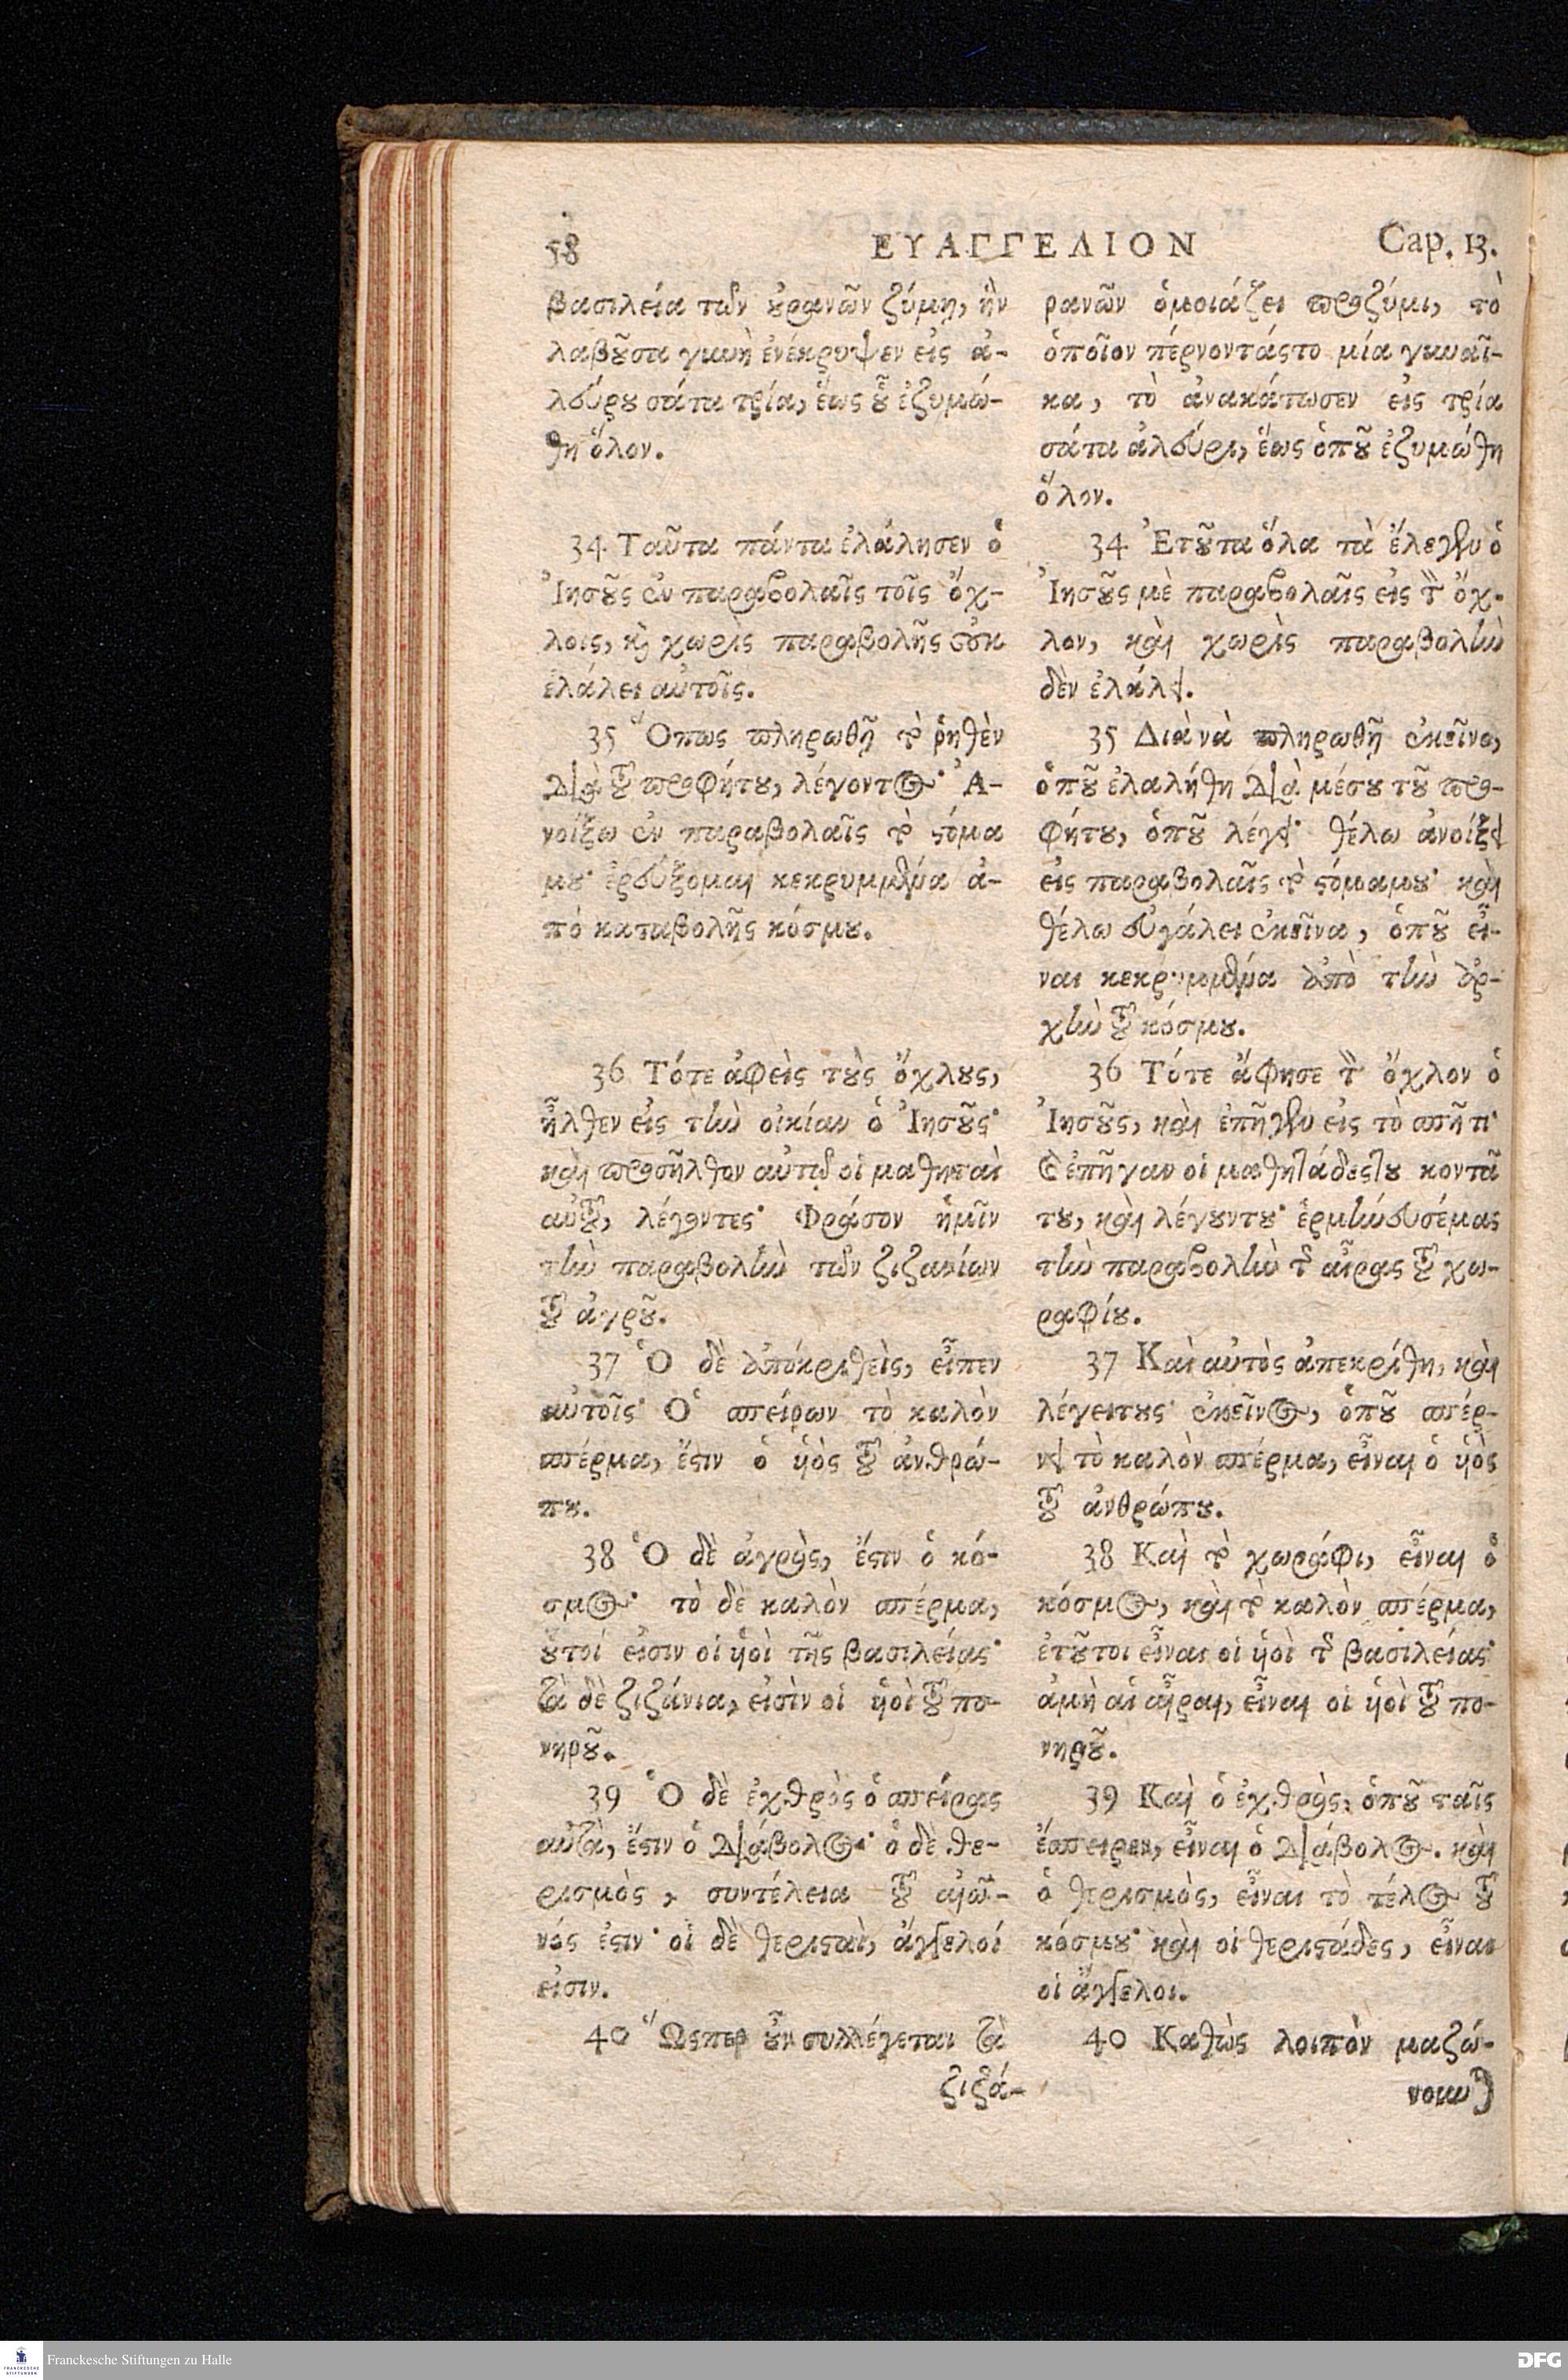 58 ΕΥΑΓΓΕΛΙΟΝ Cap. 13.
βασιλεία τῶν ȣ̓ρανῶν ζύμῃ, ἣν
λαβȣ͂σα γυνὴ ἐνέκρυψεν εἰς ἀ-
λεύρȣ σάτα τρία, ἕως ȣ̔͂ ἐζυμώ-
θη ὅλον.
34 Ταῦτα πάντα ἐλάλησεν ὁ
Ἰησȣ͂ς ἐν παραβολαῖς τοῖς ὄχ-
λοις, ϗ χωρὶς παραβολῆς οὐκ
ἐλάλει αὐτοῖς.
35 Ὅπως πληρωθῇ τὸ ῥηθὲν
διὰ τȣ͂ προφήτȣ, λέγοντος· Ἀ-
νοίξω ἐν παραβολαῖς τὸ ϛόμα
μȣ· ἐρεύξομαι κεκρυμμένα ἀ-
πὸ καταβολῆς κόσμȣ.
36 Τότε ἀφεὶς τȣ̀ς ὄχλȣς,
ἦλθεν εἰς τὴν οἰκίαν ὁ Ἰησȣ͂ς·
καὶ προσῆλθον αὐτῷ οἱ μαθηταὶ
αὐτȣ͂, λέγοντες· Φράσον ἡμῖν
τὴν παραβολὴν τῶν ζιζανίων
τȣ͂ ἀγρȣ͂.
37 Ὁ δὲ ἀποκριθεὶς, εἶπεν
αὐτοῖς· Ὁ σπείρων τὸ καλὸν
σπέρμα, ἔϛιν ὁ ὑὸς τȣ͂ ἀνθρώ-
πȣ.
38 Ὁ δὲ ἀγρὸς, ἔϛιν ὁ κό-
σμος· τὸ δὲ καλὸν σπέρμα,
ȣ̔τοί εἰσιν οἱ ὑοὶ τῆς βασιλείας·
τὰ δὲ ζιζάνια, εἰσὶν οἱ ὑοὶ τȣ͂ πο-
νηρȣ͂.
39 Ὁ δὲ ἐχθρὸς ὁ σπείρας
αὐτὰ, ἔϛιν ὁ διάβολος· ὁ δὲ θε-
ρισμὸς, συντέλεια τȣ͂ αἰῶ-
νός ἐϛιν· οἱ δὲ θεριϛαὶ, ἄγγελοί
εἰσιν.
40 Ὥςπερ ȣ̓͂ν συλλέγεται τὰ
ζιζά-
ρανῶν ὁμοιάζει προζύμι, τὸ
ὁποῖον πέρνοντάςτο μία γυναῖ-
κα, τὸ ἀνακάτωσεν εἰς τρία
σάτα ἀλεύρι, ἕως ὁπȣ͂ ἐζυμώθη
ὅλον.
34 Ἐτȣ͂τα ὅλα τὰ ἔλεγεν ὁ
Ἰησȣ͂ς μὲ παραβολαῖς εἰς τὸν ὄχ-
λον, καὶ χωρὶς παραβολὴν
δὲν ἐλάλει.
35 Διὰ νὰ πληρωθῇ ἐκεῖνο,
ὁπȣ͂ ἐλαλήθη διὰ μέσȣ τȣ͂ προ-
φήτȣ, ὁπȣ͂ λέγει· θέλω ἀνοίξει
εἰς παραβολαῖς τὸ ϛόμαμȣ· καὶ
θέλω εὐγάλει ἐκεῖνα, ὁπȣ͂ εἶ-
ναι κεκρυμμένα ἀπὸ τὴν ἀρ-
χὴν τȣ͂ κόσμȣ.
36 Τότε ἄφησε τὸν ὄχλον ὁ
Ἰησȣ͂ς, καὶ ἐπῆγεν εἰς τὸ σπῆτι·
καὶ ἐπῆγαν οἱ μαθητάδεςτȣ κοντᾶ
τȣ, καὶ λέγȣντȣ· ἑρμήνευσέμας
τὴν παραβολὴν τῆς αἴρας τȣ͂ χω-
ραφίȣ.
37 Καὶ αὐτὸς ἀπεκρίθη, καὶ
λέγειτȣς· ἐκεῖνος, ὁπȣ͂ σπέρ-
νει τὸ καλὸν σπέρμα, εἶναι ὁ ὑὸς
τȣ͂ ἀνθρώπȣ.
38 Καὶ τὸ χωράφι, εἶναι ὁ
κόσμος, καὶ τὸ καλὸν σπέρμα,
ἐτȣ͂τοι εἶναι οἱ ὑοὶ τῆς βασιλείας·
ἀμὴ αἱ αἶραι, εἶναι οἱ ὑοὶ τȣ͂ πο-
νηρȣ͂.
39 Καὶ ὁ ἐχθρὸς, ὁπȣ͂ ταῖς
ἔσπειρεν, εἶναι ὁ διάβολος. καὶ
ὁ θερισμὸς, εἶναι τὸ τέλος τȣ͂
κόσμȣ· καὶ οἱ θεριϛάδες, εἶναι
οἱ ἄγγελοι.
40 Καθὼς λοιπὸν μαζώ-
νουνται
Franckesche Stiftungen zu Halle
DFG